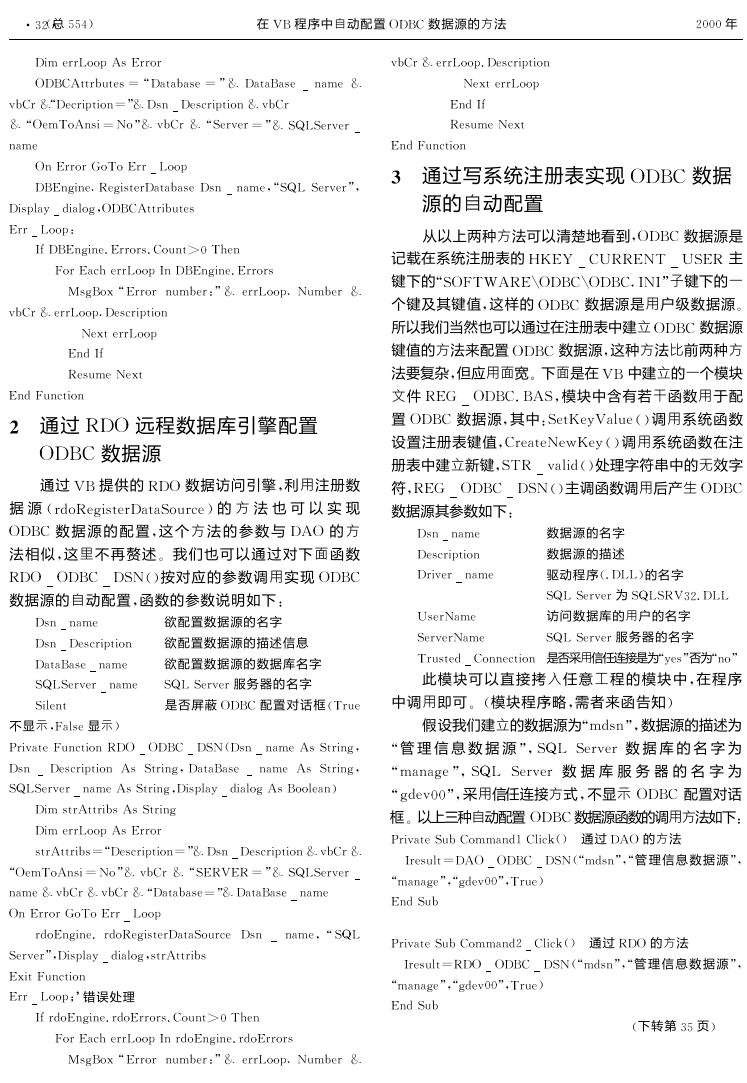 · 32(总 554)
在 VB 程序中自动配置 ODBC 数据源的方法
2000 年
Dim errLoop As Error
ODBCAttrbutes = “Database = ”& DataBase _ name &
vbCr &“Decription=”& Dsn _ Description & vbCr
& “OemToAnsi = No”& vbCr & “Server = ”& SQLServer _
name
On Error GoTo Err _ Loop
DBEngine. RegisterDatabase Dsn _ name,“SQL Server”,
Display _ dialog,ODBCAttributes
Err _ Loop:
If DBEngine. Errors. Count>0 Then
For Each errLoop In DBEngine. Errors
MsgBox “Error number:”& errLoop. Number &
vbCr & errLoop. Description
Next errLoop
End If
Resume Next
End Function
2 通过 RDO 远程数据库引擎配置
ODBC 数据源
通过 VB 提供的 RDO 数据访问引擎,利用注册数
据源(rdoRegisterDataSource)的方法也可以实现
ODBC 数据源的配置,这个方法的参数与 DAO 的方
法相似,这里不再赘述。我们也可以通过对下面函数
RDO _ ODBC _ DSN()按对应的参数调用实现 ODBC
数据源的自动配置,函数的参数说明如下:
Dsn _ name 欲配置数据源的名字
Dsn _ Description 欲配置数据源的描述信息
DataBase _ name 欲配置数据源的数据库名字
SQLServer _ name SQL Server 服务器的名字
Silent 是否屏蔽 ODBC 配置对话框(True
不显示,False 显示)
Private Function RDO _ ODBC _ DSN(Dsn _ name As String,
Dsn _ Description As String, DataBase _ name As String,
SQLServer _ name As String,Display _ dialog As Boolean)
Dim strAttribs As String
Dim errLoop As Error
strAttribs=“Description=”& Dsn _ Description & vbCr &
“OemToAnsi = No”& vbCr & “SERVER = ”& SQLServer _
name & vbCr & vbCr & “Database=”& DataBase _ name
On Error GoTo Err _ Loop
rdoEngine. rdoRegisterDataSource Dsn _ name, “SQL
Server”,Display _ dialog,strAttribs
Exit Function
Err _ Loop:’错误处理
If rdoEngine. rdoErrors. Count>0 Then
For Each errLoop In rdoEngine. rdoErrors
MsgBox “Error number:”& errLoop. Number &
vbCr & errLoop. Description
Next errLoop
End If
Resume Next
End Function
3 通过写系统注册表实现 ODBC 数据
源的自动配置
从以上两种方法可以清楚地看到,ODBC 数据源是
记载在系统注册表的 HKEY _ CURRENT _ USER 主
键下的“SOFTWARE\ODBC\ODBC. INI”子键下的一
个键及其键值,这样的 ODBC 数据源是用户级数据源。
所以我们当然也可以通过在注册表中建立 ODBC 数据源
键值的方法来配置 ODBC 数据源,这种方法比前两种方
法要复杂,但应用面宽。下面是在 VB 中建立的一个模块
文件 REG _ ODBC. BAS,模块中含有若干函数用于配
置 ODBC 数据源,其中:SetKeyValue()调用系统函数
设置注册表键值,CreateNewKey()调用系统函数在注
册表中建立新键,STR _ valid()处理字符串中的无效字
符,REG _ ODBC _ DSN()主调函数调用后产生 ODBC
数据源其参数如下:
Dsn _ name 数据源的名字
Description 数据源的描述
Driver _ name 驱动程序(. DLL)的名字
SQL Server 为 SQLSRV32. DLL
UserName 访问数据库的用户的名字
ServerName SQL Server 服务器的名字
Trusted _ Connection 是否采用信任连接是为“yes”否为“no”
此模块可以直接拷入任意工程的模块中,在程序
中调用即可。(模块程序略,需者来函告知)
假设我们建立的数据源为“mdsn”,数据源的描述为
“管理信息数据源”, SQL Server 数据库的名字为
“manage”, SQL Server 数据库服务器的名字为
“gdev00”,采用信任连接方式,不显示 ODBC 配置对话
框。以上三种自动配置 ODBC 数据源函数的调用方法如下:
Private Sub Command1 Click() 通过 DAO 的方法
Iresult=DAO _ ODBC _ DSN(“mdsn”,“管理信息数据源”,
“manage”,“gdev00”,True)
End Sub
Private Sub Command2 _ Click() 通过 RDO 的方法
Iresult=RDO _ ODBC _ DSN(“mdsn”,“管理信息数据源”,
“manage”,“gdev00”,True)
End Sub
(下转第 35 页)